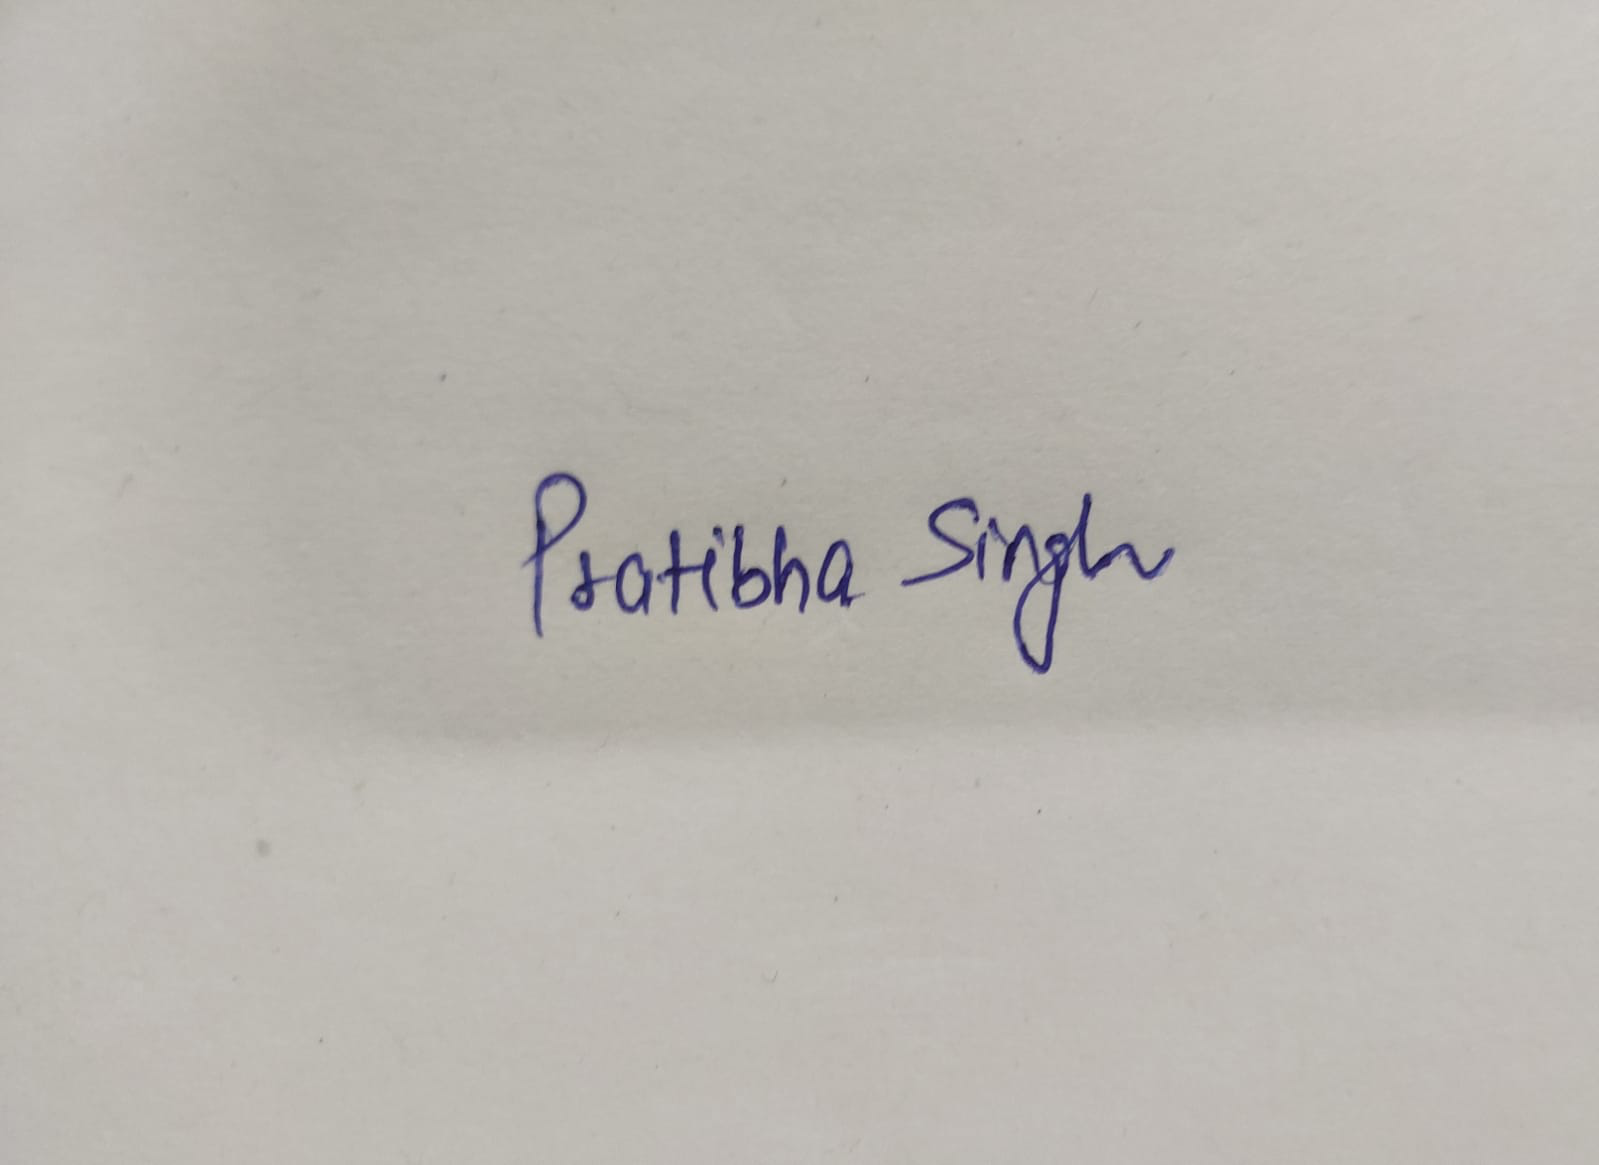 Pratibha Singh